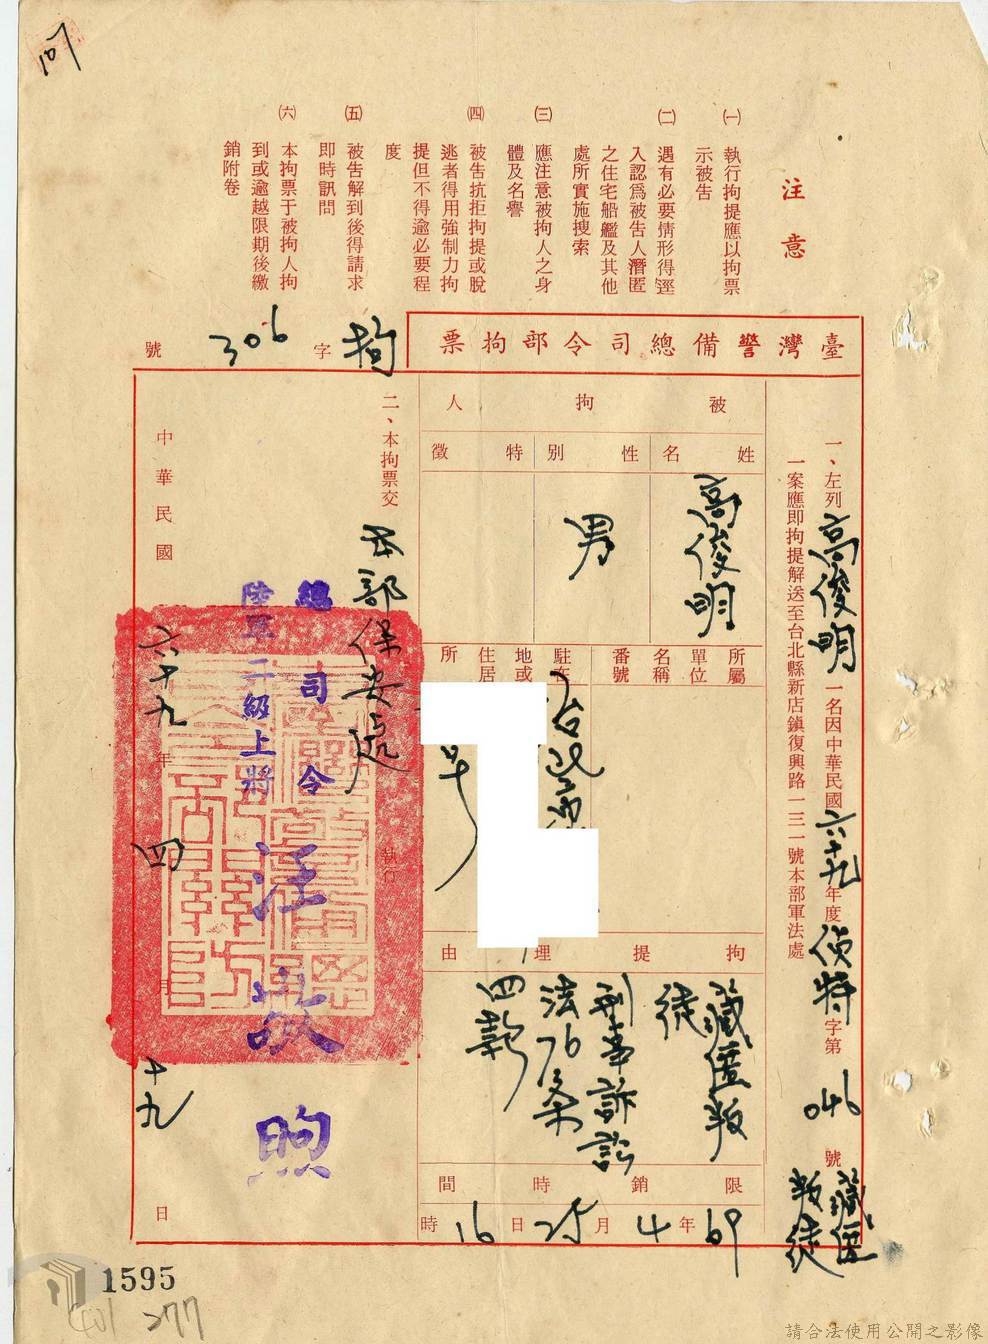 107
注意
㈠ 執行拘提應以拘票
示被告
㈡ 遇有必要情形得逕
入認爲被告人潛匿
之住宅船艦及其他
處所實施搜索
㈢ 應注意被拘人之身
體及名譽
㈣ 被告抗拒拘提或脫
逃者得用強制力拘
提但不得逾必要程
度
㈤ 被告解到後得請求
即時訊問
㈥ 本拘票于被拘人拘
到或逾越限期後繳
銷附卷
臺灣警備總司令部拘票
拘字306號
一、左列高俊明一名因中華民國六十九年度偵特字第046號藏匿叛徒
一案應即拘提解送至台北縣新店鎮復興路一三一號本部軍法處
被拘人
姓名
性別
特徵
高俊明
男
所屬
單位
名稱
番號
駐在
地或
住居
所
拘提理由
藏匿叛
徒
刑事訴訟
法76条
四款
限銷時間
69年4月25日16時
二、本拘票交本部保安處執行
總司令
陸軍二級上將
汪敬煦
中華民國六十九年四月十九日
1595
401 277
請合法使用公開之影像